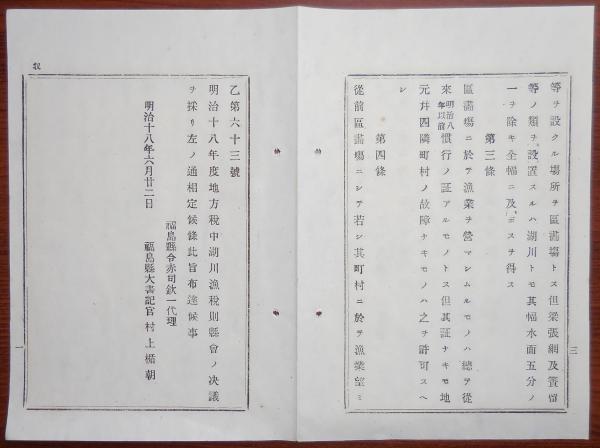 等ヲ設クル塲所ヲ區畵塲トス但梁張網及簀留
等ノ類ヲ設置スルハ湖川トモ其幅水面五分ノ
一ヲ除キ全幅ニ及ボスヲ得ス
第三條
區畵塲ニ於テ漁業ヲ營マシムルモノハ總テ從
來明治八年以前慣行ノ証アルモノトス但其証ナキモ地
元幷四隣町村ノ故障ナキモノハ之ヲ許可スヘ
シ
第四條
從前區畵塲ニシテ若シ其町村ニ於テ漁業望ミ
三
乙第六十三號
明治十八年度地方税中湖川漁税則縣會ノ决議
ヲ採リ左ノ通相定候條此旨布達候事
福島縣令赤司欽一代理
明治十八年六月廿二日
福島縣大書記官村上楯朝
一